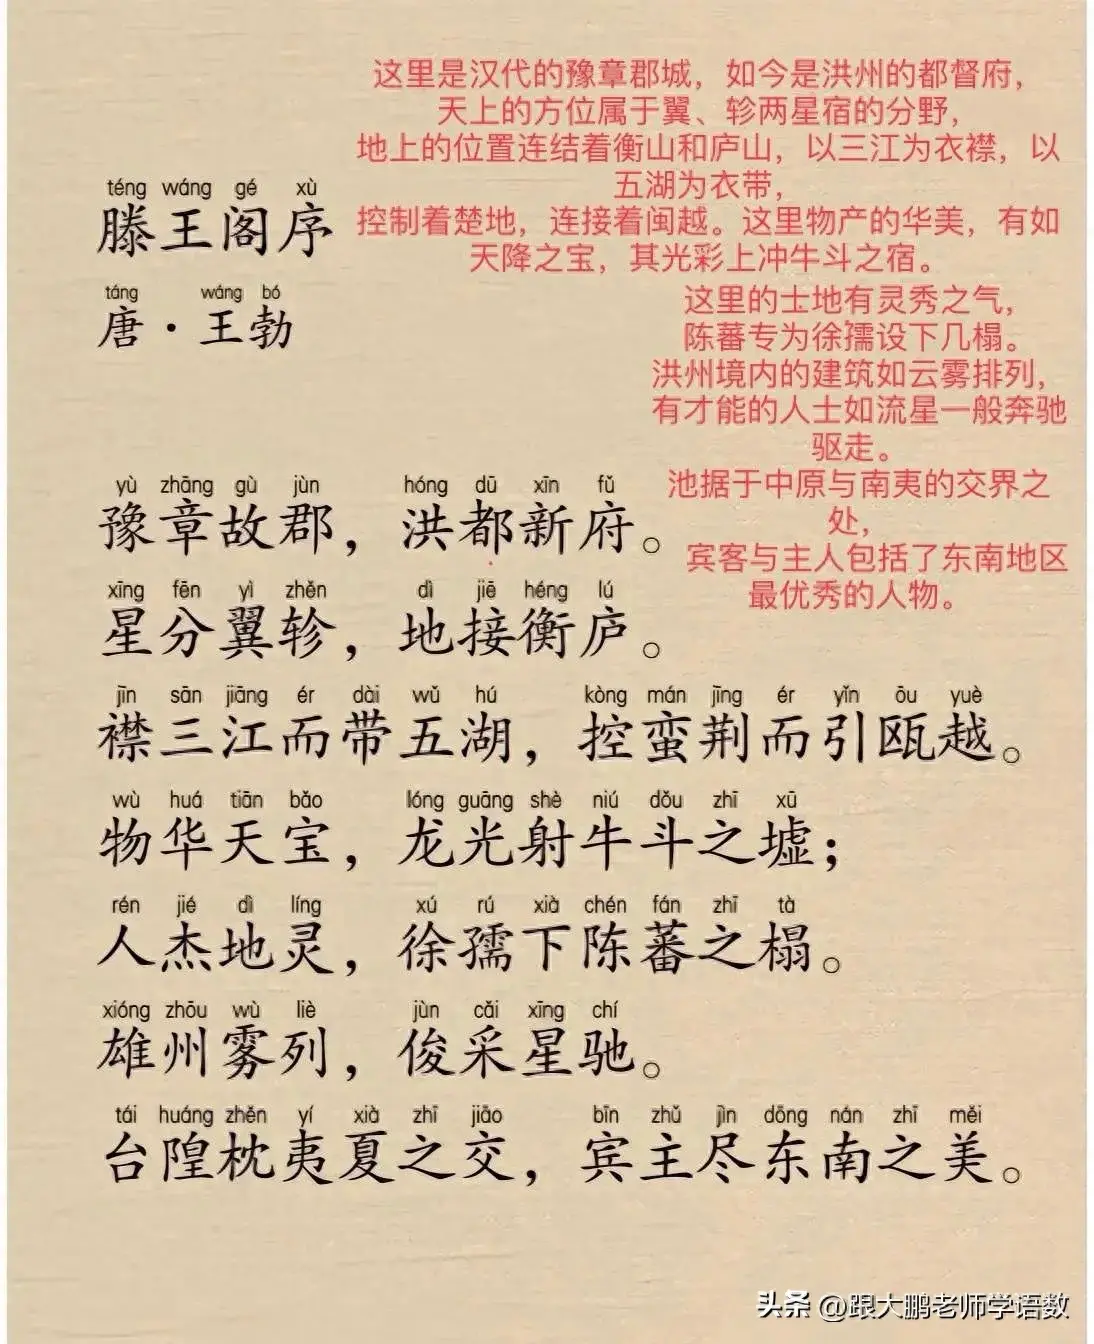 这里是汉代的豫章郡城，如今是洪州的都督府，
天上的方位属于翼、轸两星宿的分野，
地上的位置连结着衡山和庐山，以三江为衣襟，以
五湖为衣带，
控制着楚地，连接着闽越。这里物产的华美，有如
天降之宝，其光彩上冲牛斗之宿。
这里的土地有灵秀之气，
陈蕃专为徐孺设下几榻。
洪州境内的建筑如云雾排列，
有才能的人士如流星一般奔驰
驱走。
池据于中原与南夷的交界之
处，
宾客与主人包括了东南地区
最优秀的人物。
téng wáng gé xù
滕王阁序
táng wáng bó
唐·王勃
yù zhāng gù jùn hóng dū xīn fǔ
豫章故郡，洪都新府。
xīng fēn yì zhěn dì jiē héng lú
星分翼轸，地接衡庐。
jīn sān jiāng ér dài wǔ hú kòng mán jīng ér yǐn ōu yuè
襟三江而带五湖，控蛮荆而引瓯越。
wù huá tiān bǎo lóng guāng shè niú dǒu zhī xū
物华天宝，龙光射牛斗之墟；
rén jié dì líng xú rú xià chén fán zhī tà
人杰地灵，徐孺下陈蕃之榻。
xióng zhōu wù liè jùn cǎi xīng chí
雄州雾列，俊采星驰。
tái huáng zhěn yí xià zhī jiāo bīn zhǔ jìn dōng nán zhī měi
台隍枕夷夏之交，宾主尽东南之美。
头条 @跟大鹏老师学语数